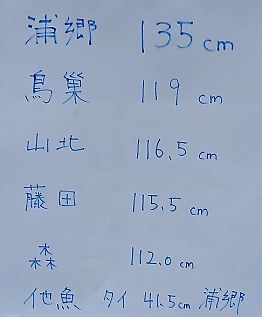 浦郷 135cm
鳥巣 119cm
山北 116.5cm
藤田 115.5cm
森 112.0cm
他魚 タイ 41.5cm 浦郷